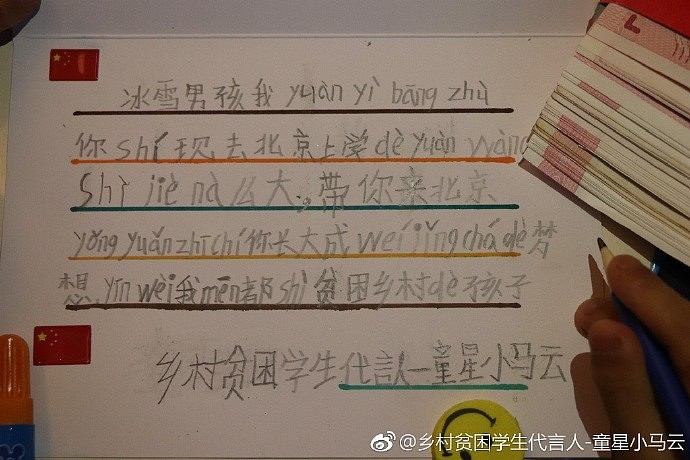 冰雪男孩我yuàn yì bāng zhù
你shí现去北京上学dè yuàn wàng
Shì jiè nà么大。带你来北京
yǒng yuǎn zhī chí你长大成wéi jǐng chá dè梦
想.yīn wèi我mēn都shì贫困乡村dè孩子
乡村贫困学生代言人—童星小马云
@乡村贫困学生代言人-童星小马云